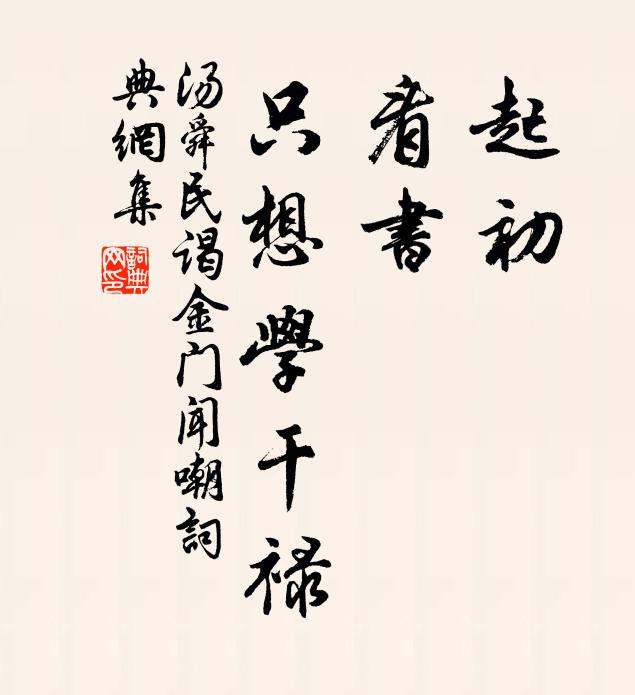 起初
看書
只想學干祿
汤舜民谒金门闻嘲詞
典網集
詞典
网印